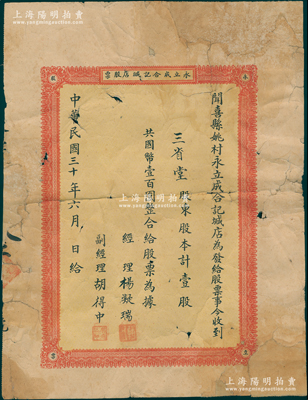 上海陽明拍賣
www.yangmingauction.com
永立成合記堿店股票
聞喜縣姚村永立成合記堿店為發給股票事今收到
三省堂股東股本計壹股
共國幣壹百圓整合給股票為據
經理楊發瑞
副經理胡得中
中華民國三十年六月 日給
上海陽明拍賣
www.yangmingauction.com